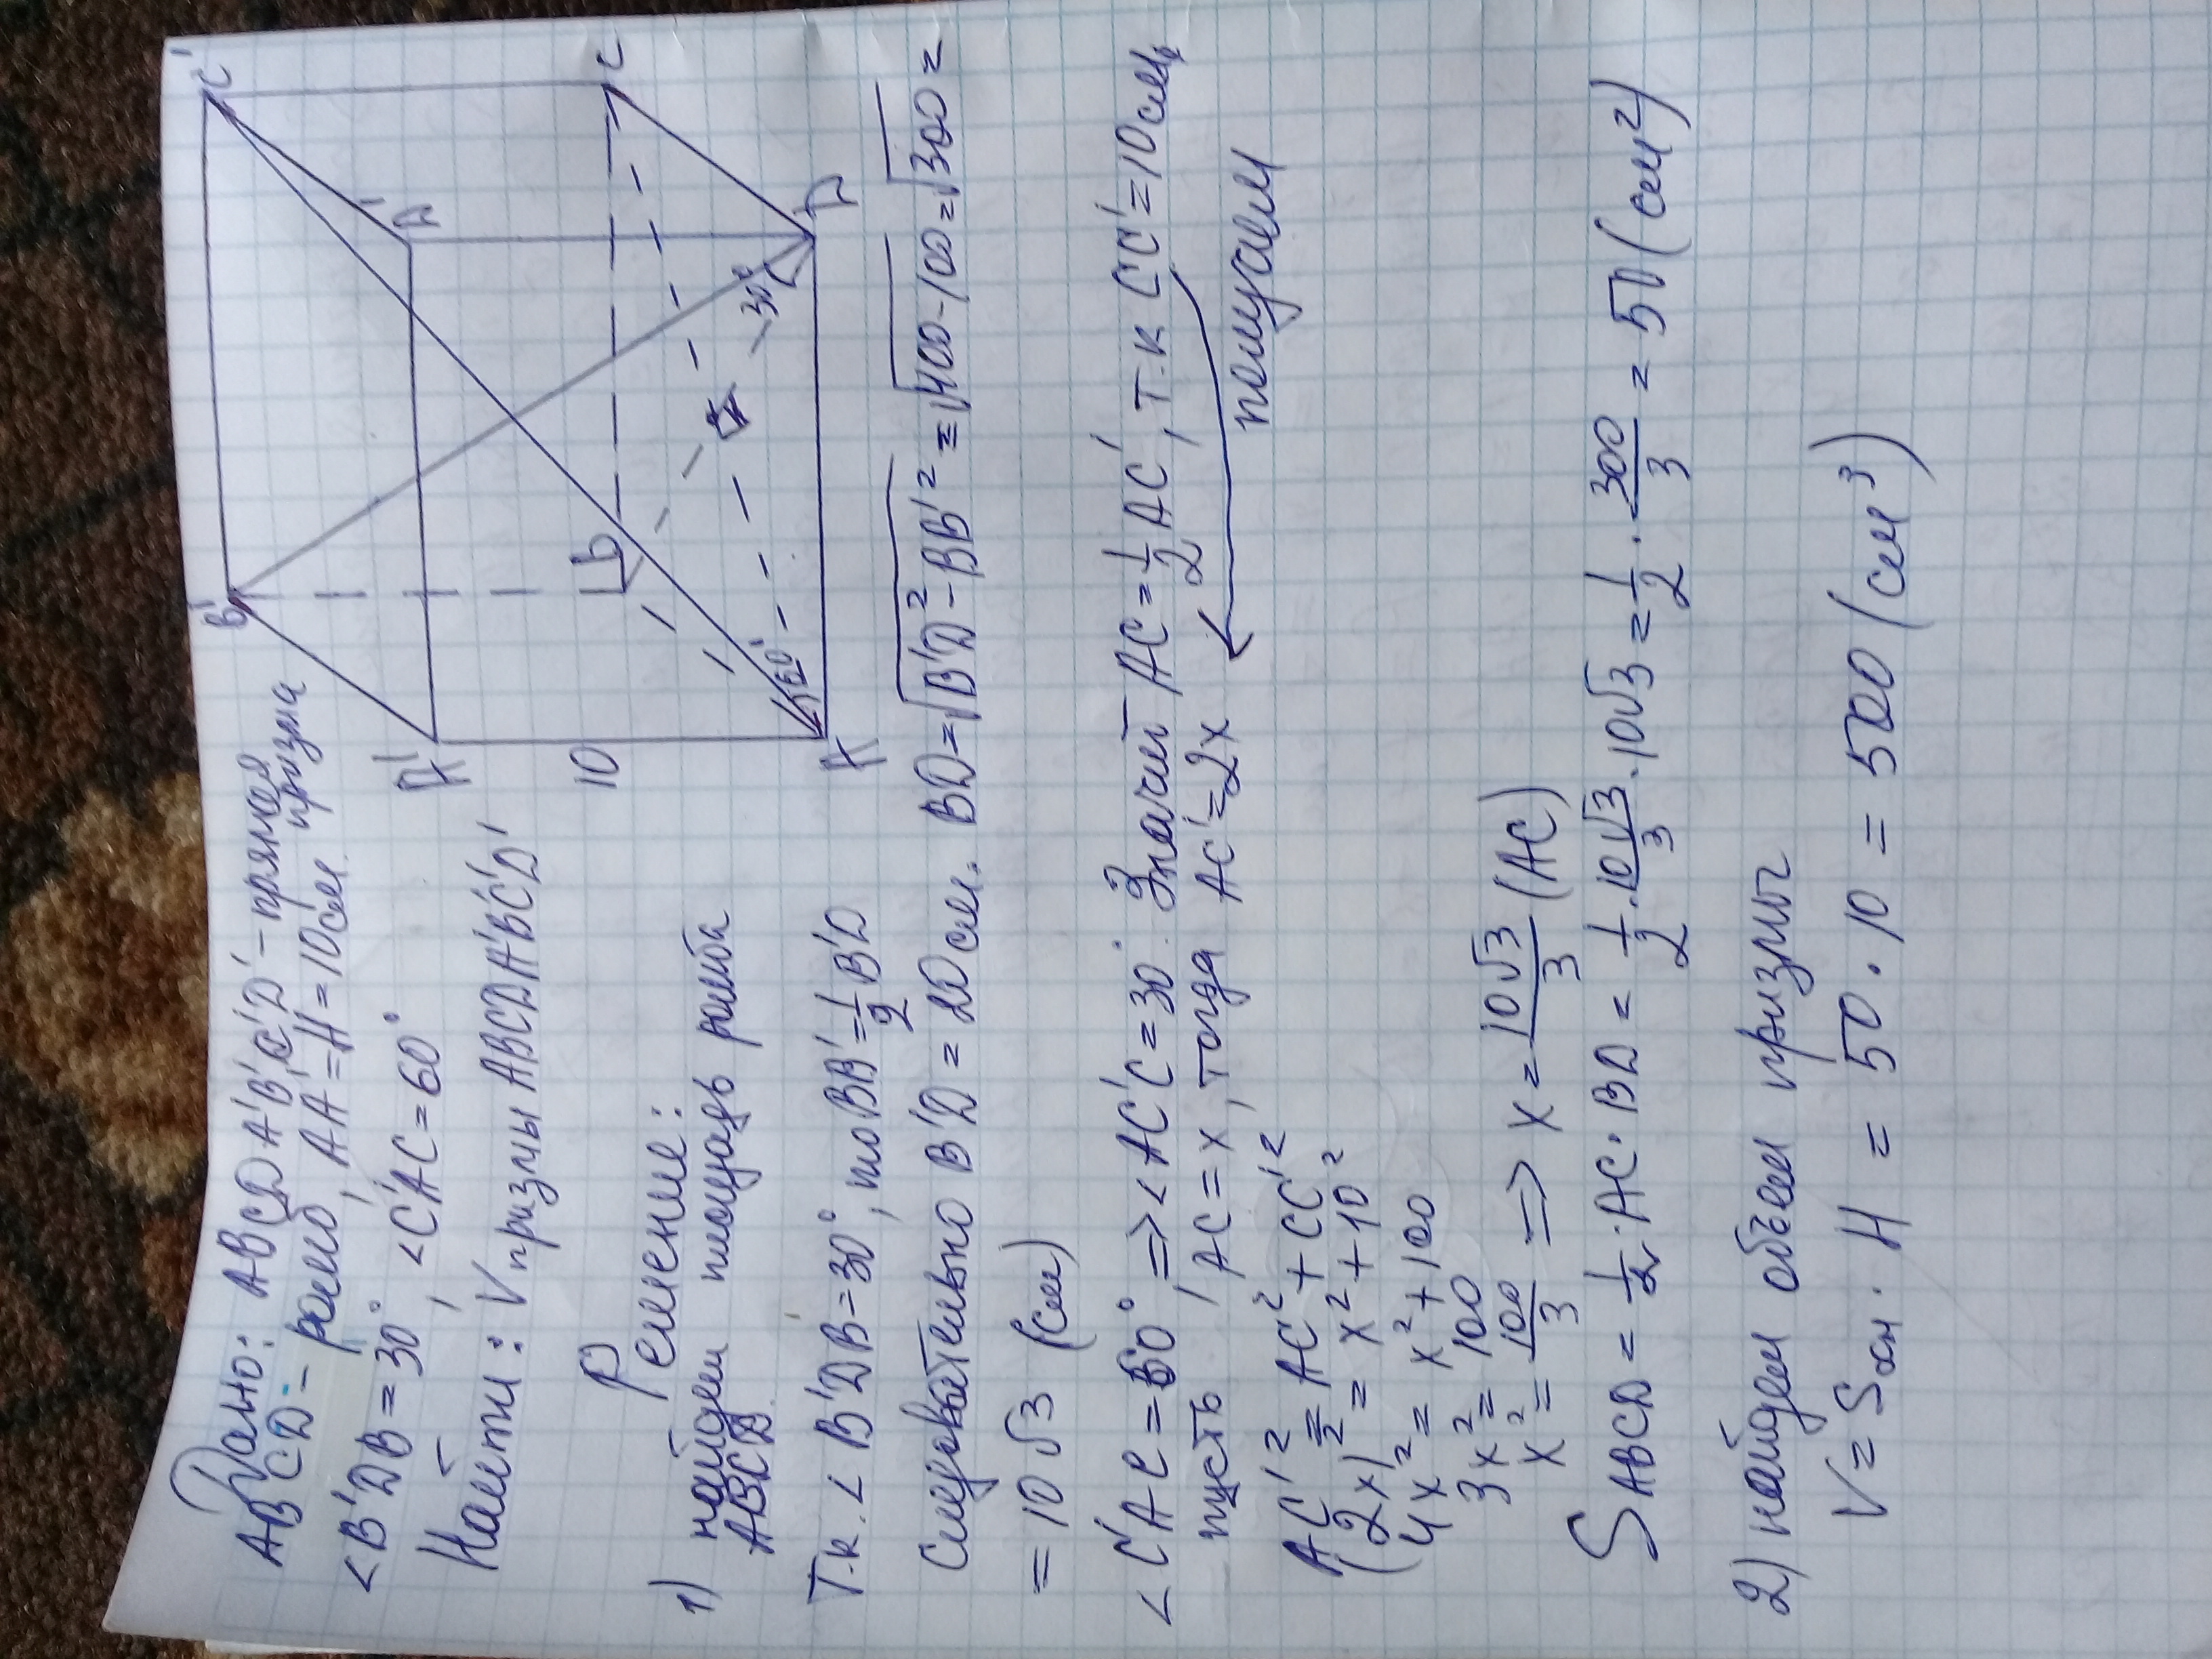 Дано: ABCDA'B'C'D' - прямая призма
ABCD - ромб, AA' = H = 10 см.
<B'DB = 30°, <C'AC = 60°
Найти: V призмы ABCDA'B'C'D'
B'
C'
A'
D'
10
B
C
A
D
60°
30°
Решение:
1) найдем площадь ромба
ABCD.
Т.к. <B'DB = 30°, то BB' = 1/2 B'D
Следовательно B'D = 20 см. BD = √(B'D² - BB'²) = √(400-100) = √300 =
= 10√3 (см)
<C'AC = 60° => <AC'C = 30°. Значит AC = 1/2 AC', т.к CC' = 10 см,
пусть AC = x, тогда AC' = 2x ← получаем
AC'² = AC² + CC'²
(2x)² = x² + 10²
4x² = x² + 100
3x² = 100
x² = 100/3 => x = 10√3/3 (AC)
S ABCD = 1/2 · AC · BD = 1/2 · 10√3/3 · 10√3 = 1/2 · 300/3 = 50 (см²)
2) найдем объем призмы
V = Sосн · H = 50 · 10 = 500 (см³)